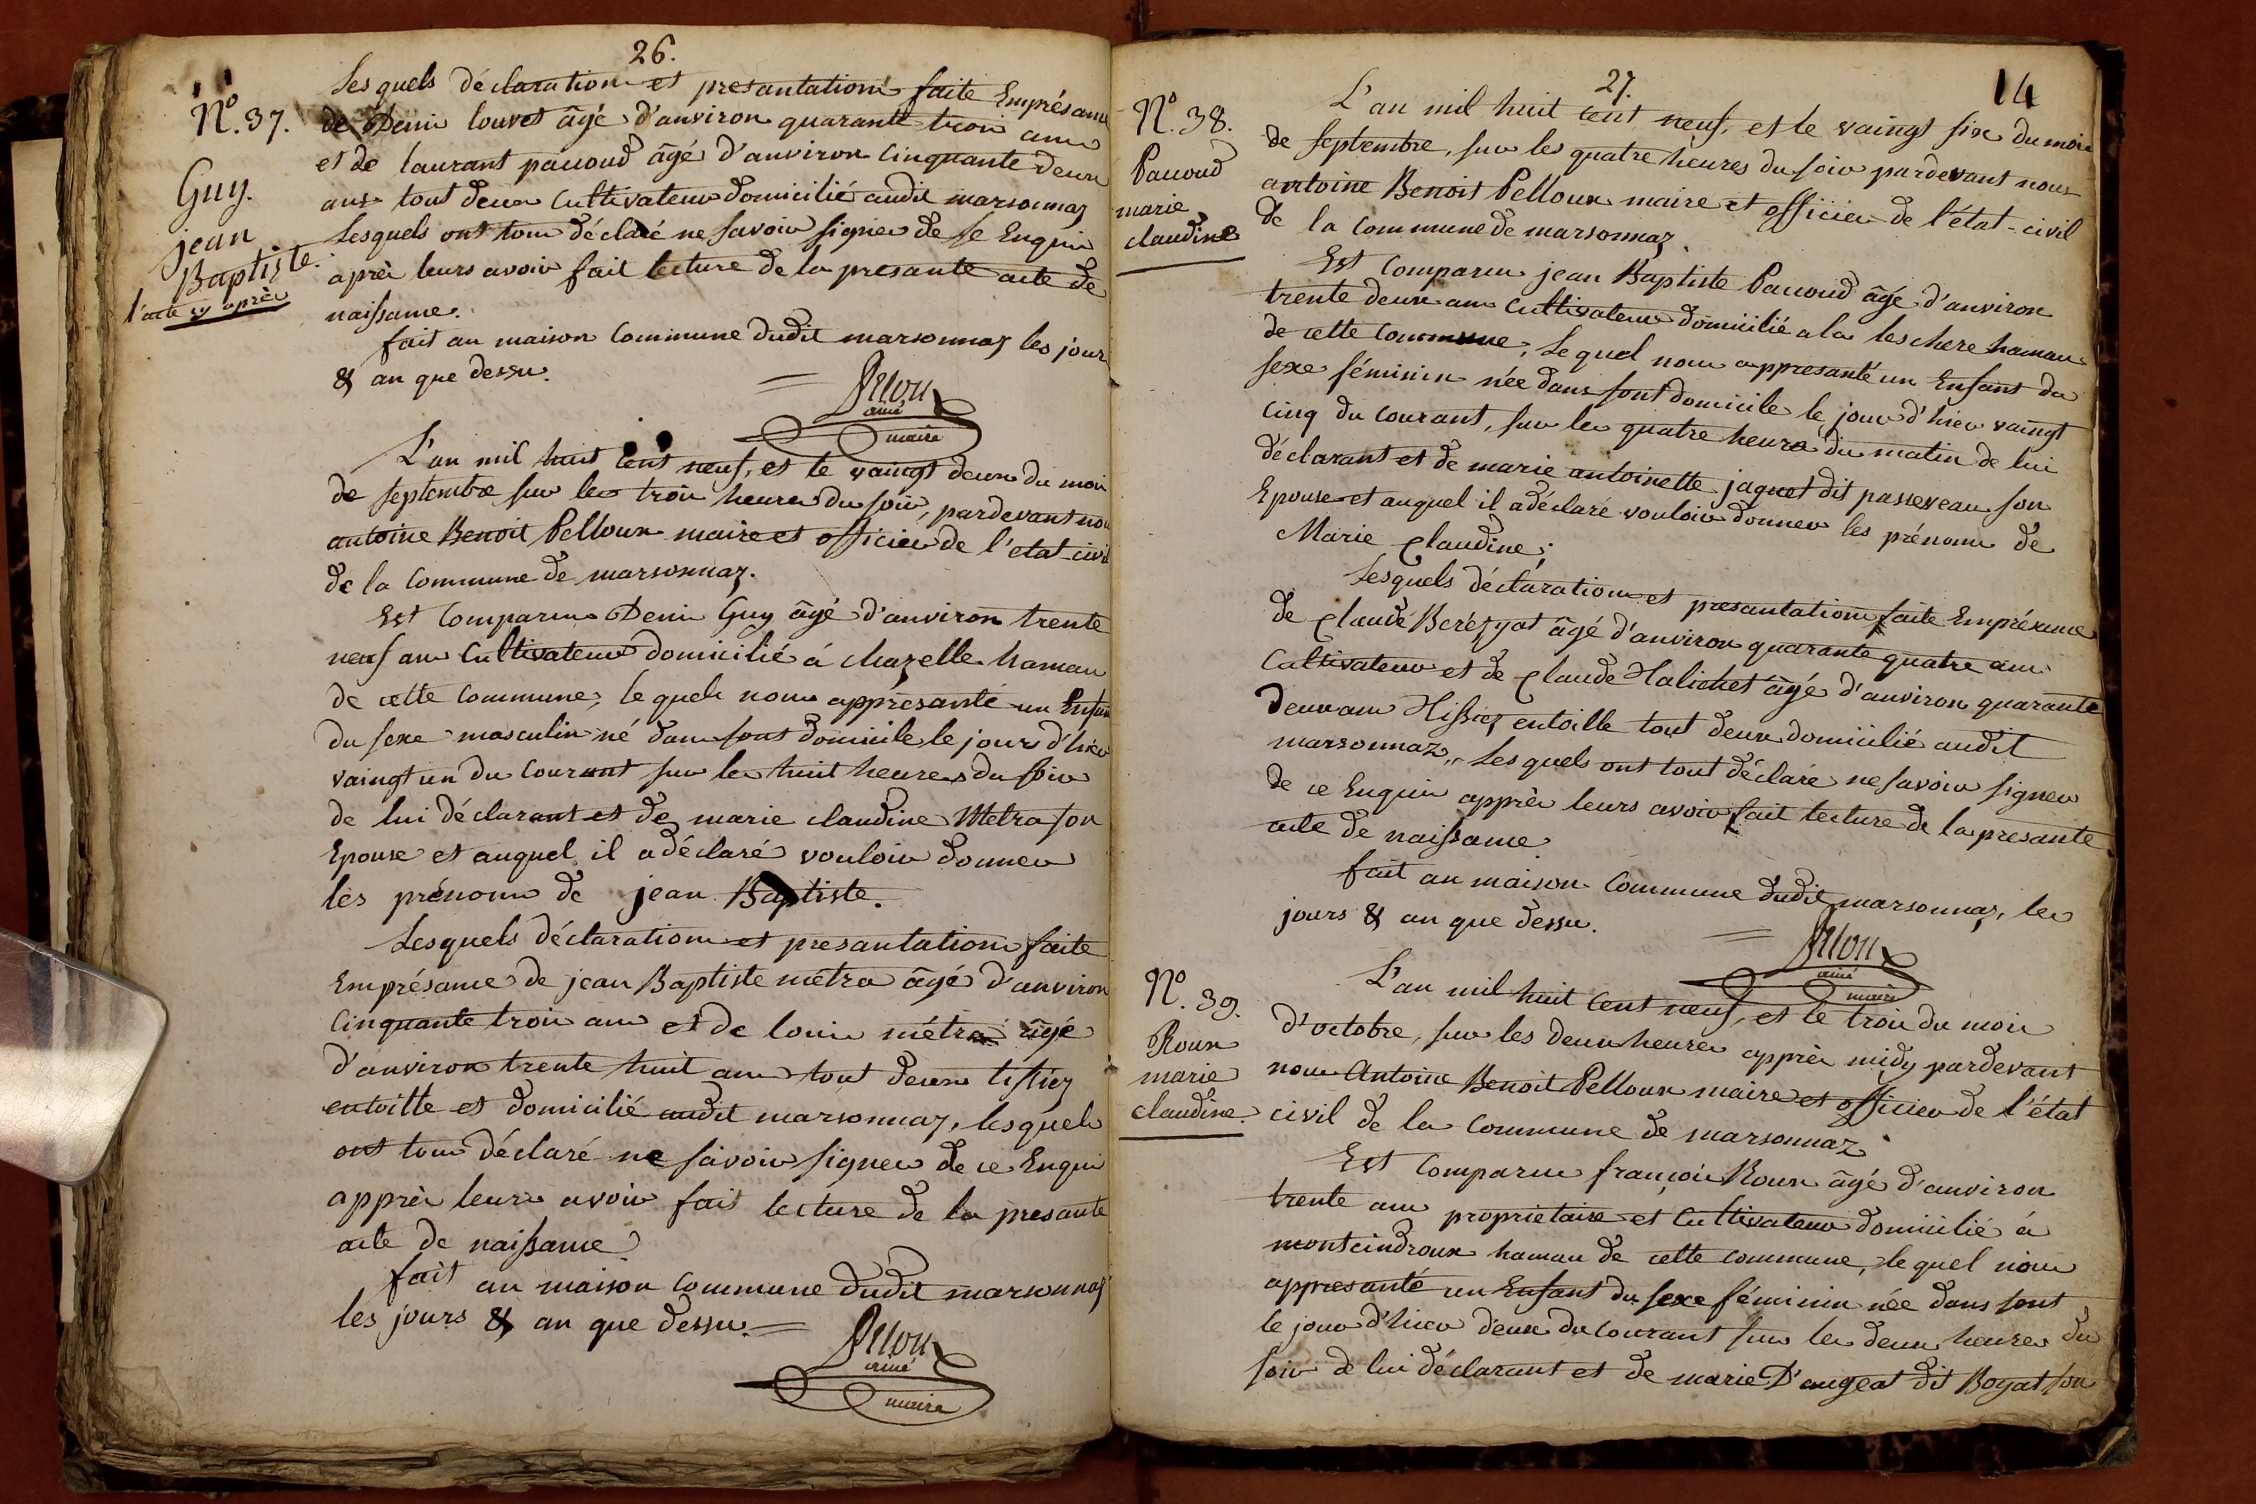 26.
N.º 37.
Guy.
jean
Baptiste.
l'acte cy après
Lesquels déclaration et presantation faite Emprésance
de Denis louvet âgé d'anviron quarante trois ans
et de laurant pacoud âgé d'anviron Cinquante deux
ans tout deux Cultivateur domicilié audit marsonnaz
Lesquels ont tous déclaré ne savoir signer de se Enquis
après leurs avoir fait lecture de la presante acte de
naissance.
fait au maison Commune dudit marsonnaz les jour
& an que dessus.
Pelloux
ainé
maire
L'an mil huit Cent neuf, et le vaingt deux du mois
de septembre sur les trois heures du soir, pardevant nous
antoine Benoit Pelloux maire et officier de l'etat-civil
de la Commune de marsonnaz.
Est Comparus Denis Guy âgé d'anviron trente
neuf ans Cultivateur domicilié á chazelle hamau
de cette Commune, le quels nous appresanté un Enfant
du sexe masculin né dans sont domicile le jours d'hier
vaingt un du Courant sur les huit heures du soir
de lui déclarant et de marie claudine Metra son
Epouse et auquel il a déclaré vouloir donner
les prénoms de jean Baptiste.
Lesquels déclaration et presantation faite
Emprésance de jean Baptiste métra âgé d'anviron
Cinquante trois ans et de louis métra âgé
d'anviron trente huit ans tout deux tissiez
entoille et domicilié audit marsonnaz, lesquels
ont tous déclaré ne savoir signer de ce Enquis
apprès leurs avoir fait lecture de la presante
acte de naissance
fait au maison Commune dudit marsonnaz
les jours & an que dessus.
Pelloux
ainé
maire
27.
14
N.º 38.
Pacoud
marie
claudine
L'an mil huit Cent neuf, et le vaingt six du mois
de septembre, sur les quatre heures du soir pardevant nous
antoine Benoit Pelloux maire et officier de l'état-civil
de la Commune de marsonnaz.
Est Comparus jean Baptiste Pacoud âgé d'anviron
trente deux ans Cultivateur domicilié a la leschere hamau
de cette Commune, Lequel nous appresanté un Enfant du
sexe féminin née dans sont domicile le jour d'hier vaingt
Cinq du Courant, sur les quatre heures du matin de lui
déclarant et de marie antoinette jaquet dit passereau son
Epouse et auquel il a déclaré vouloir donner les prénoms de
Marie Claudine;
Lesquels déclaration et presantation faite Emprésance
de Claude Berézyat âgé d'anviron quarante quatre ans
Cultivateur et de Claude Halichet âgé d'anviron quarante
deux ans Tissiez entoille tout deux domicilié audit
marsonnaz, Lesquels ont tout déclaré ne savoir signer
de ce Enquis apprès leurs avoir fait lecture de la presante
acte de naissance
fait au maison Commune dudit marsonnaz, les
jours & an que dessus.
Pelloux
ainé
maire
N.º 39.
Roux
marie
claudine
L'an mil huit Cent neuf, et le trois du mois
d'octobre, sur les deux heures apprès midy pardevant
nous Antoine Benoit Pelloux maire et officier de l'état
civil de la Commune de marsonnaz
Est Comparus françois Roux âgé d'anviron
trente ans proprietaire et Cultivateur domicilié á
montcindroux hamau de cette commune, lequel nous
appresanté un Enfant du sexe féminin née dans sont
le jour d'hier deux du courant sur les deux heures du
soir de lui déclarant et de marie D'angeat dit Boyat son